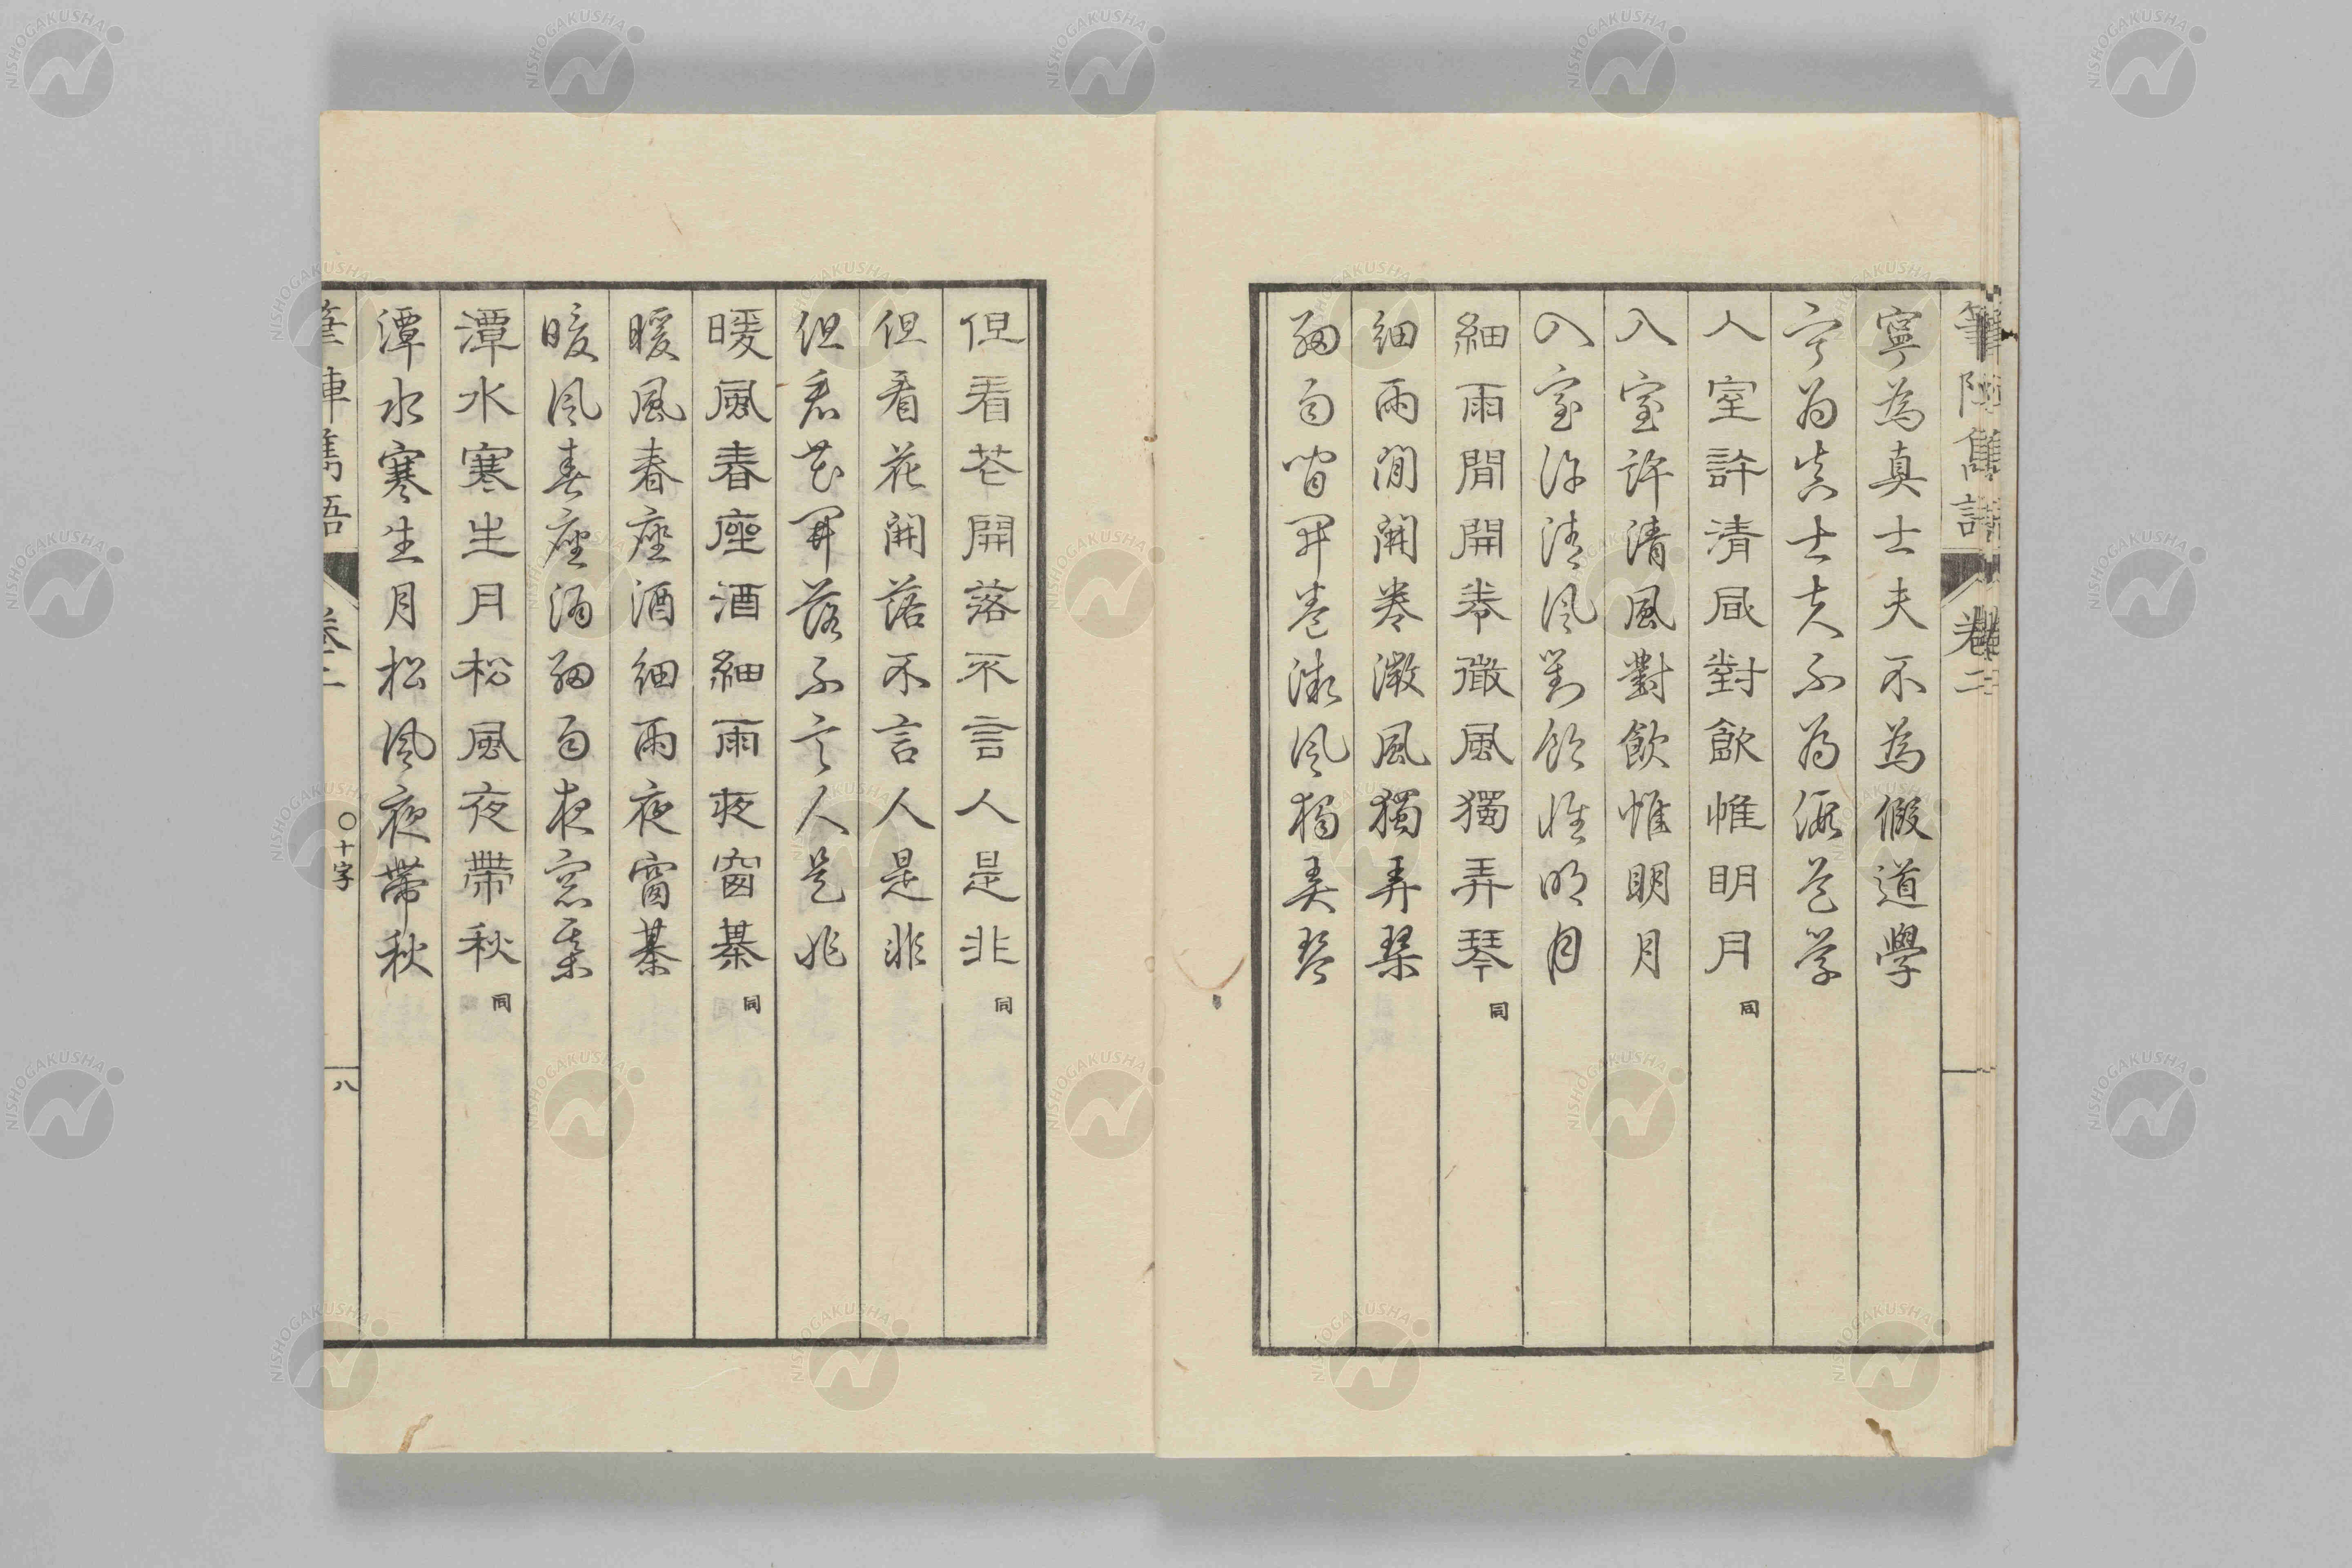 筆陣雋語 卷二
寧為真士夫不為假道學
寧為真士夫不為假道學
入室許清風對飲惟明月 同
入室許清風對飲惟明月
入室許清風對飲惟明月
細雨閒開卷微風獨弄琴 同
細雨閒開卷微風獨弄琴
細雨閒開卷微風獨弄琴
但看花開落不言人是非 同
但看花開落不言人是非
但看花開落不言人是非
暖風春座酒細雨夜窗棊 同
暖風春座酒細雨夜窗棊
暖風春座酒細雨夜窗棊
潭水寒生月松風夜帶秋 同
潭水寒生月松風夜帶秋
筆陣雋語 卷二 〇十字 八
NISHOGAKUSHA